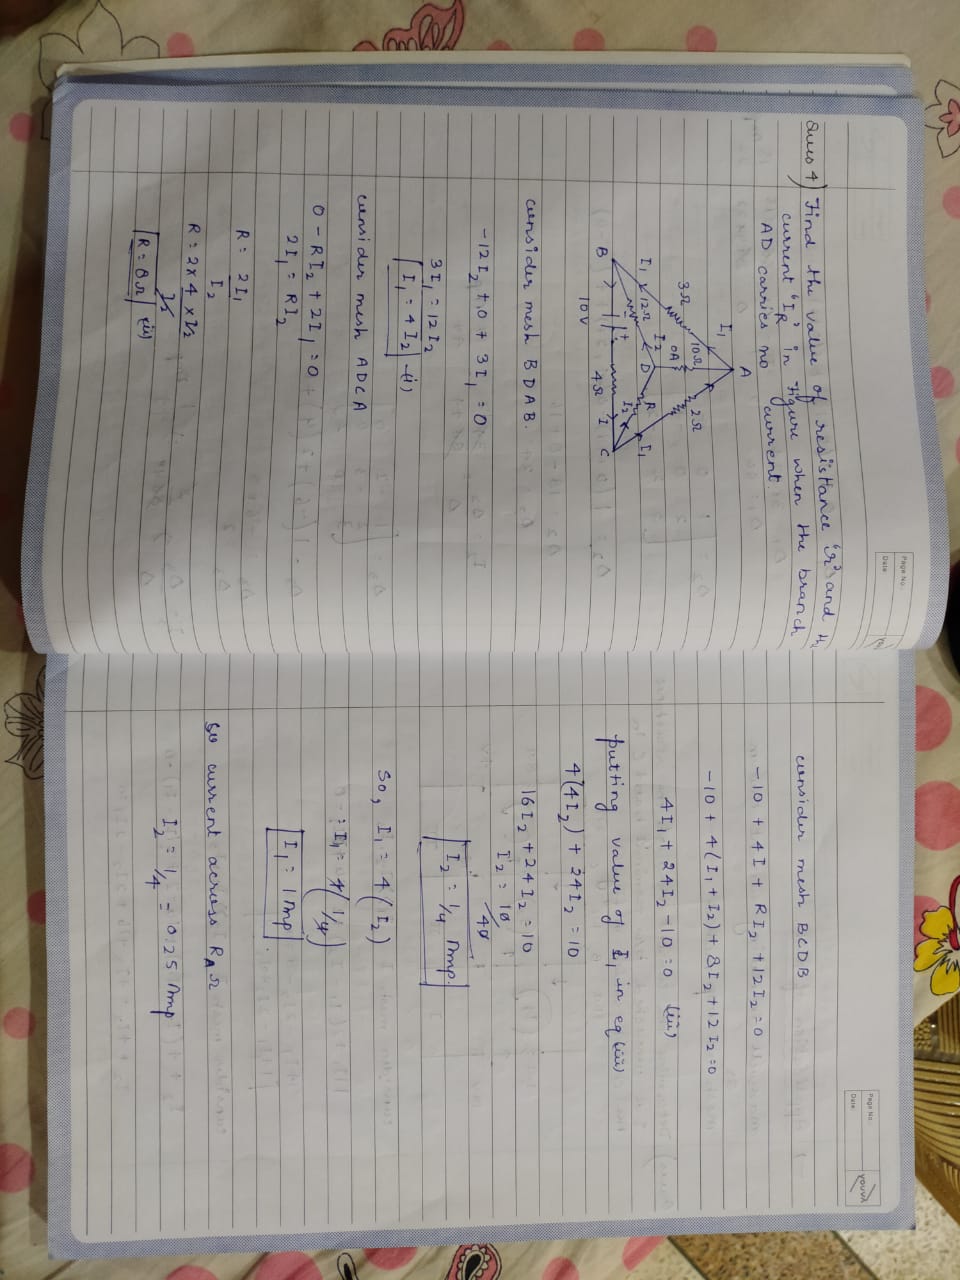 Page No.
Date
Ques 4) Find the value of resistance 'r' and
current "IR" in figure when the branch
AD carries no current
A
I1
3Ω
10Ω
2Ω
0A
I1
12Ω
I2
D
R
I2
I1
B
+
I
C
10V
4Ω
consider mesh BDAB.
-12I2 + 0 + 3I1 = 0
3I1 = 12I2
I1 = 4I2 -(i)
consider mesh ADCA
0 - RI2 + 2I1 = 0
2I1 = RI2
R = 2I1
I2
R = 2 x 4 x I2
I2
R = 8Ω (ii)
Page No.
Date
YOUVA
consider mesh BCDB
-10 + 4I + RI2 + 12I2 = 0
-10 + 4(I1 + I2) + 8I2 + 12I2 = 0
4I1 + 24I2 - 10 = 0 (iii)
putting value of I1 in eq (iii)
4(4I2) + 24I2 = 10
16I2 + 24I2 = 10
I2 = 10
40
I2 = 1/4 Amp.
So, I1 = 4(I2)
I1 = 4(1/4)
I1 = 1 Amp
so current across RΩ
I2 = 1/4 = 0.25 Amp